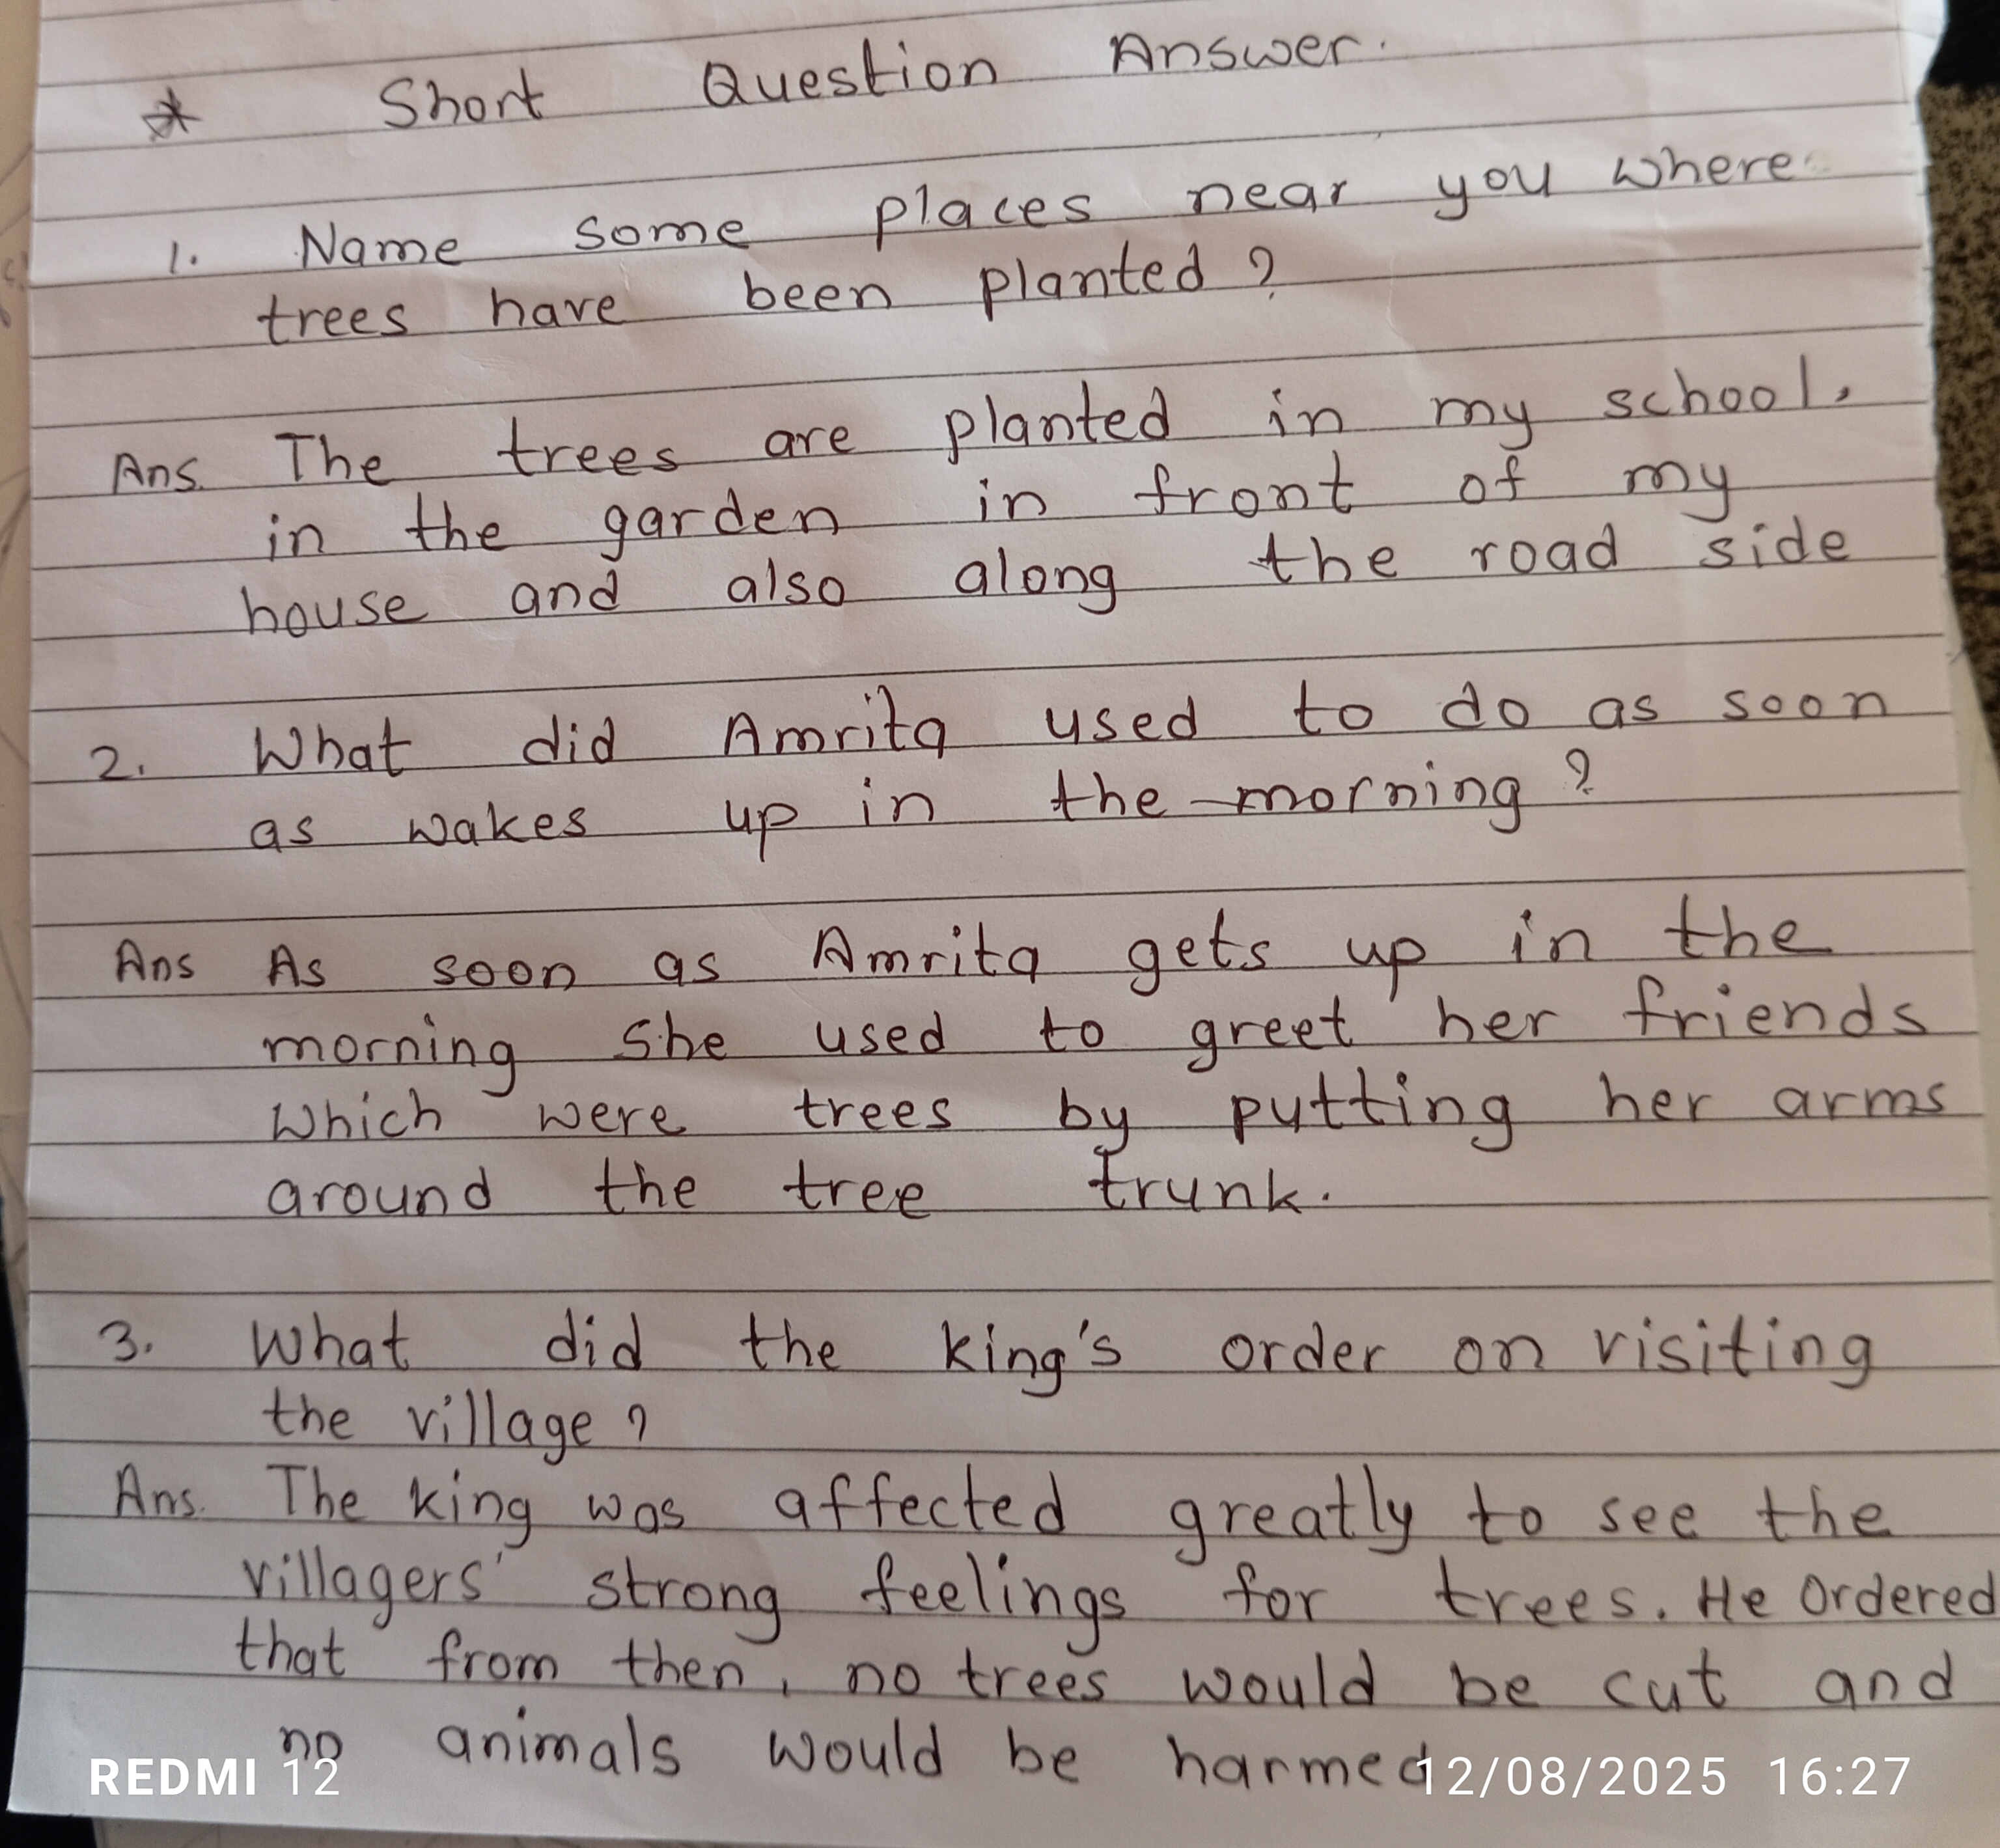 * Short Question Answer.
1. Name some places near you where
trees have been planted ?
Ans. The trees are planted in my school,
in the garden in front of my
house and also along the road side
2. What did Amrita used to do as soon
as wakes up in the morning ?
Ans As soon as Amrita gets up in the
morning she used to greet her friends
which were trees by putting her arms
around the tree trunk.
3. What did the king's order on visiting
the village ?
Ans. The king was affected greatly to see the
villagers' strong feelings for trees. He ordered
that from then, no trees would be cut and
no animals would be harmed
REDMI 12 12/08/2025 16:27